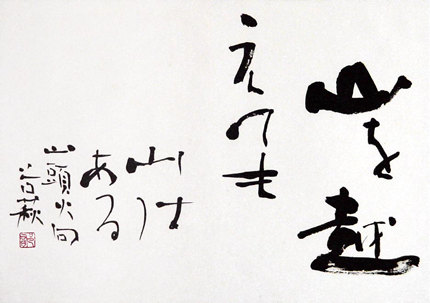 山を越
えても
山は
ある
山頭火句